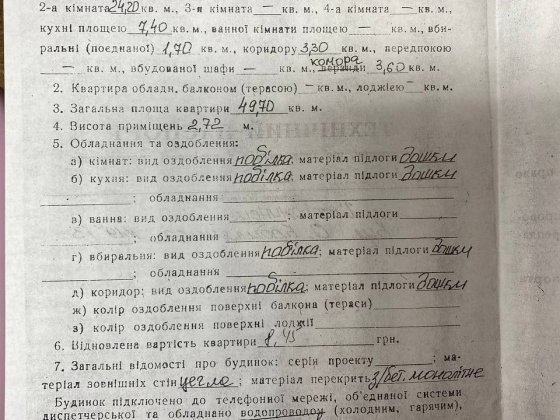 2-а кімната 24,20 кв. м., 3-я кімната — кв. м., 4-а кімната — кв. м.,
кухні площею 7,40 кв. м., ванної кімнати площею — кв. м., вби-
ральні (поєднаної) 1,70 кв. м., коридору 3,30 кв. м., передпокою
— кв. м., вбудованої шафи — кв. м., комора веранди 3,60 кв. м.
2. Квартира обладн. балконом (терасою) — кв. м., лоджією — кв. м.
3. Загальна площа квартири 49,70 кв. м.
4. Висота приміщень 2,72 м.
5. Обладнання та оздоблення:
а) кімнат: вид оздоблення побілка матеріал підлоги дошки
б) кухня: вид оздоблення побілка, матеріал підлоги дошки
; обладнання
в) ванна: вид оздоблення ; матеріал підлоги
; обладнання
г) вбиральня: вид оздоблення побілка; матеріал підлоги дошки
; обладнання
д) коридор; вид оздоблення побілка; матеріал підлоги дошки
ж) колір оздоблення поверхні балкона (тераси)
з) колір оздоблення поверхні лоджії
6. Відновлена вартість квартири 8,45 грн.
7. Загальні відомості про будинок: серія проекту ; ма-
теріал зовнішніх стін цегла; матеріал перекрить з/бет. монолітне
Будинок підключено до телефонної мережі, об'єднаної системи
диспетчерської та обладнано водопроводом (холодним, гарячим),